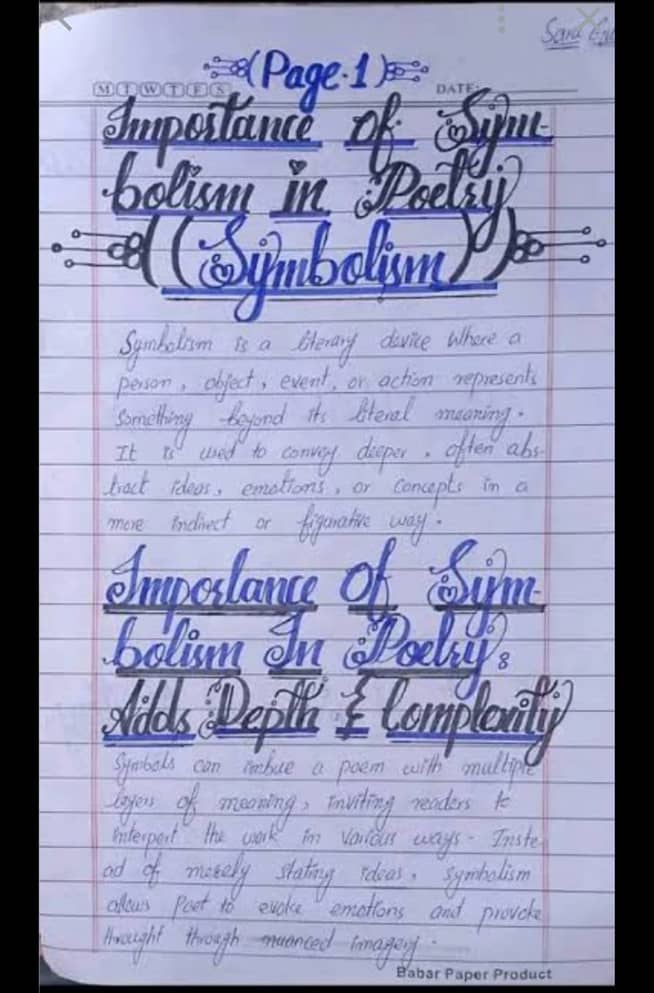 (Page-1)
M T W T F S
DATE:
Importance of Sym-
bolism in Poetry
((Symbolism))
Symbolism is a literary device where a
person, object, event, or action represents
something beyond its literal meaning.
It is used to convey deeper, often abs-
tract ideas, emotions, or concepts in a
more indirect or figurative way.
Importance Of Sym-
bolism In Poetry:
Adds Depth & Complexity
Symbols can imbue a poem with multiple
layers of meaning, inviting readers to
interpert the work in various ways. Inste-
ad of merely stating ideas, symbolism
allows Poet to evoke emotions and provoke
throught through nuanced imagery.
Babar Paper Product